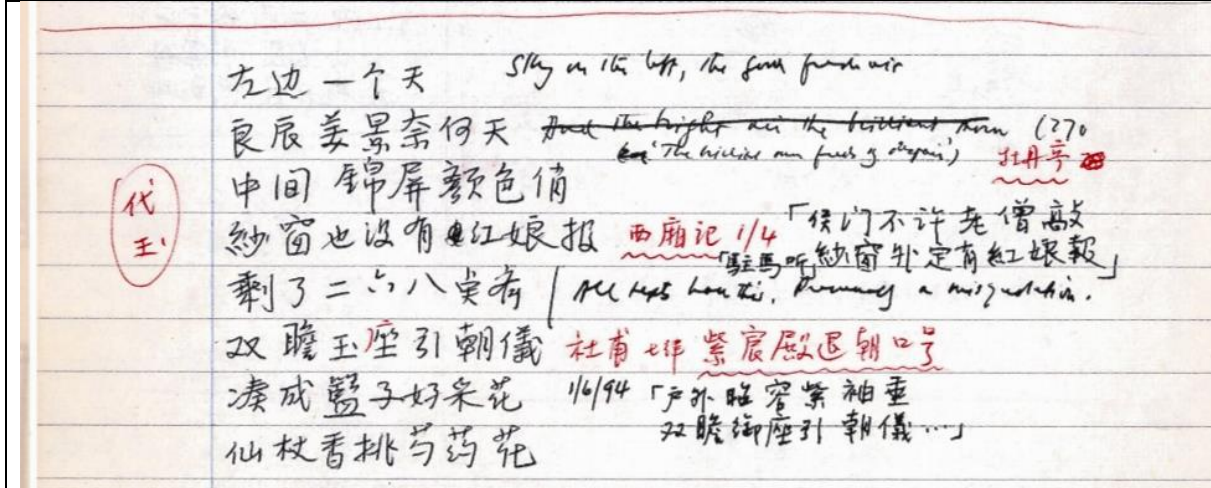 左边一个天 Sky on the left, the good fresh air
良辰美景奈何天 And the bright air the brilliant morn (270
('The brilliant morn feeds my despair') 牡丹亭
中间 錦屏颜色俏
代玉
紗窗也没有红娘报 西廂记 1/4 「侯门不许老僧敲
「駐馬听」紗窗外定有紅娘報」
剩了二六八奌齐 All texts have this. Presumably a misquotation.
双瞻玉座引朝儀 杜甫 七律 紫宸殿退朝口号
凑成籃子好采花 1/6/94 「户外昭容紫袖垂
双瞻御座引朝儀…」
仙杖香挑芍药花